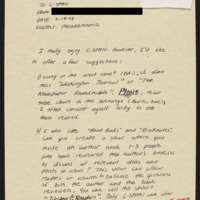 To: C-SPAN
FROM:
DATE: 3-18-98
SUBJECT: PROGRAMMING
I really enjoy C-SPAN. However, I'd like
to offer a few suggestions:
1) Living in the west coast (CA), I often
miss "Washington Journal" or "The
Newspaper Roundtable". Please, rerun
these shows in the evenings
I often consider myself lucky to see
them rerun.
2) I also like "About Books" and "Booknotes".
Can you create a show where you
invite an author and 1-3 people
who have reviewed the author's book(s)
to discuss all relevant ideas and
points of view? This show can allow
readers or viewers to balance the opinions
of both the author and the book
reviewers. You can call the show:
"Writers & Readers". Only C-SPAN can offer